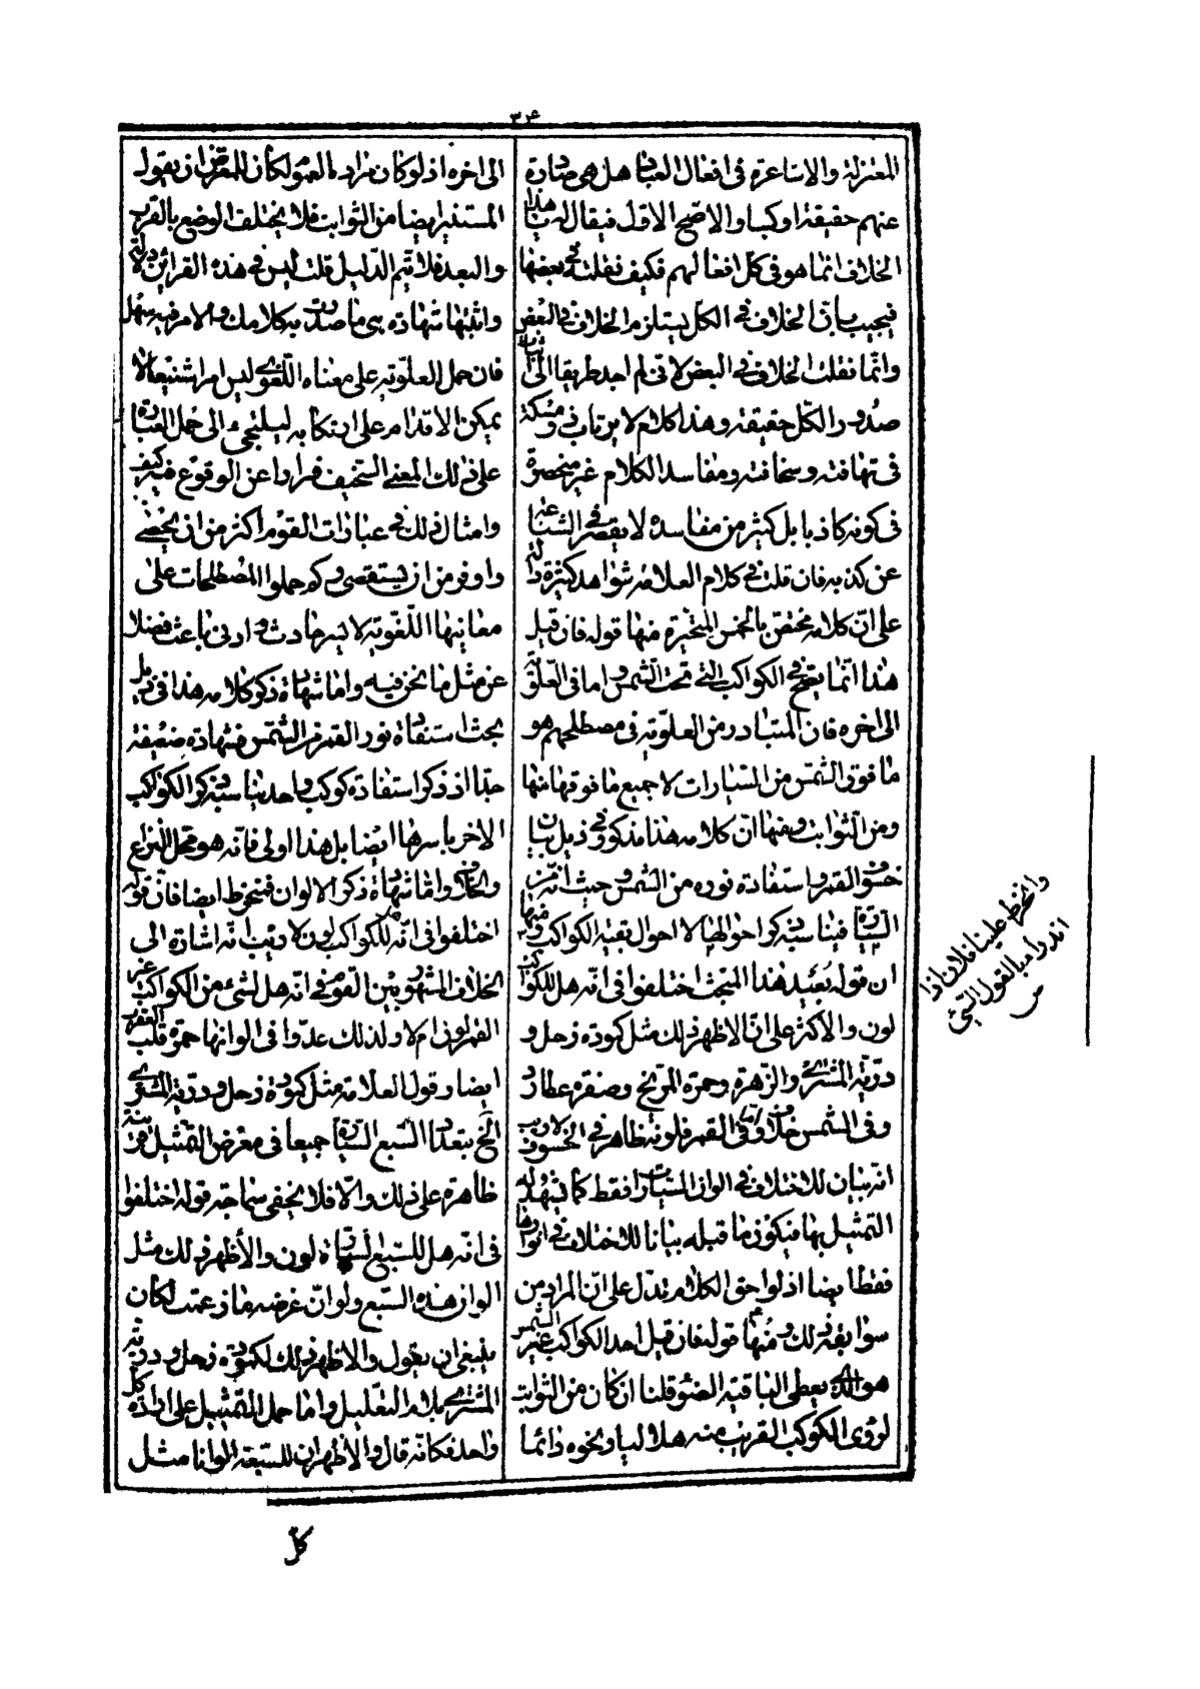 ٣٤
المعتزلة والاشاعرة فى افعال العباد هل هى صادرة
عنهم حقيقة او كسبا والاصح الاول فيقال له هذا
الخلاف انما هو فى كل افعالهم فكيف نقلته فى بعضها
فيجيب بان الخلاف فى الكل يستلزم الخلاف فى البعض
وانما نقلت الخلاف فى البعض لانى لم اجد طريقا الى اثبات
صدور الكل حقيقة وهذا كلام لا يرتاب ذو مسكة
فى تهافته وسخافته ومفاسد الكلام غير منحصرة
فى كونه كاذبا بل كثير من مفاسده لا يقصر فى الشناعة
عن كذبه فان قلت فى كلام العلامة شواهد كثيرة دالة
على ان كلامه مختص بالخمس المتحيرة منها قوله فان قيل
هذا انما يصح فى الكواكب التى تحت الشمس واما فى العلوية
الى اخره فان المتبادر من العلوية فى مصطلحهم هو
ما فوق الشمس من السيارات لا جميع ما فوقها منها
ومن الثوابت ومنها ان كلامه هذا مذكور فى ذيل بيان
خسوف القمر واستفادة نوره من الشمس وحيث انه من
السيارة فيناسبه ذكر احوالها لا احوال بقية الكواكب ومنها
ان قوله بعيد هذا المبحث اختلفوا فى انه هل للكواكب
لون والاكثر على ان الاظهر ذلك مثل كمودة زحل و
درية المشترى والزهرة وحمرة المريخ وصفرة عطارد
وفى الشمس خلاف واما فى القمر فلونه ظاهر فى الخسوف لا ريب
انه بيان للاختلاف فى الوان السيارات فقط كما يشهد له
التمثيل بها فيكون ما قبله بيانا للاختلاف فى انوارها
فقط ايضا اذ لواحق الكلام تدل على ان المراد من
سوابقه ذلك ومنها قوله فان قيل احد الكواكب غير الشمس
هو الذى يعطى الباقية الضوء قلنا ان كان من الثوابت
لرؤى الكوكب القريب منه هلاليا ونحوه دائما
الى اخره اذ لو كان مراده العموم لكان للمعترض ان يقول
المستنير ايضا من الثوابت فلا يختلف الوضع بالقرب
والبعد فلا يتم الدليل قلت ليس فى هذه القرائن دلالة
واثبتها شهادة بى ما صدرت به كلامك والامر فيه سهل
فان حمل العلوية على معناه اللغوى ليس امرا شنيعا لا
يمكن الاقدام على ارتكابه ليلتجىء الى حمل العبارة
على ذلك المعنى السخيف فرارا عن الوقوع فيه كيف
وامثال ذلك فى عبارات القوم اكثر من ان يحصى
واوفر من ان يستقصى وكم حملوا المصطلحات على
معانيها اللغوية لايسر حادث وادنى باعث فضلا
عن مثل ما نحن فيه واما شهادة ذكر كلامه هذا فى ذيل
بحث استفادة نور القمر من الشمس فشهادة ضعيفة
جدا اذ ذكر استفادة كوكب واحد يناسبه ذكر الكواكب
الاخر باسرها ايضا بل هذا اولى فانه هو محل النزاع
والخلاف واما شهادة ذكر الالوان فمنخرط ايضا فان قوله
اختلفوا فى انه هل للكواكب لون لا ريب انه اشارة الى
الخلاف المشهور بين القوم فى انه هل لشىء من الكواكب غير
القمر لون ام لا ولذلك عدوا فى الوانها حمرة قلب العقرب
ايضا وقول العلامة مثل كمودة زحل ودرية المشترى
الخ بتعداد السبع السيارة جميعا فى معرض التمثيل قرينة
ظاهرة على ذلك والا فلا يخفى سماجة قوله اختلفوا
فى انه هل للسبع السيارة لون والاظهر ذلك مثل
الوان هذه السبع ولو ان غرضه ما زعمت لكان
ينبغى ان يقول والاظهر ذلك لكمودة زحل ودرية
المشترى بلام التعليل واما حمل التمثيل على ارادة كل
واحد فكانه قال والاظهر ان للسبعة الوانا مثل
وانخرط علينا فلان اذا
اندرا مبالقول السيئ
ص
كل